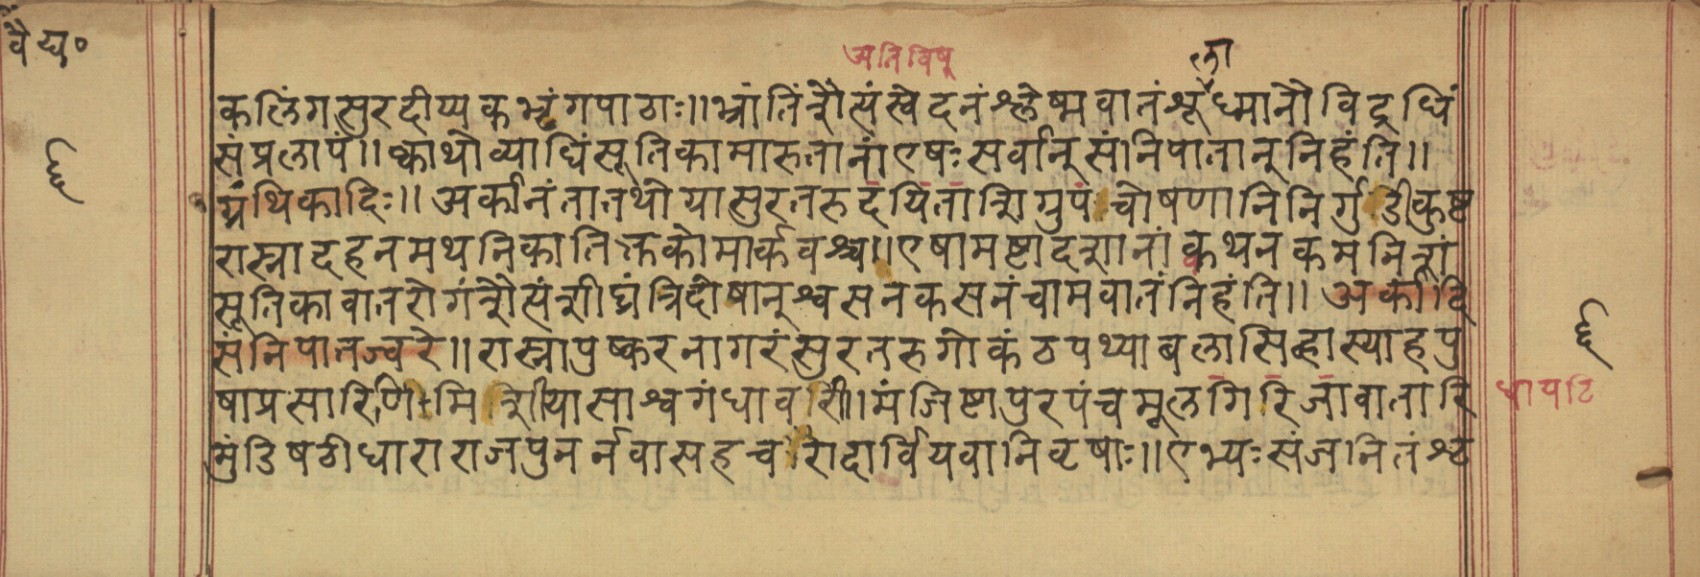 वै द्य॰
अतिविषू
ला
कलिंगसुरदीप्यकभृंगपाठाः॥भ्रांतिंशैत्यंस्वेदनंश्लेष्मवातंशूध्मानौविद्रधिं
६
संप्रलापं॥क्वाथोव्याधिंसूतिकामारुतानांएषःसर्वान्संनिपातान्निहंति॥
ग्रंथिकादिः॥अर्कानंतातथोयासुरतरुदयितात्रिगुपंचोषणानिनिर्गुंडीकुष्ट
रास्नादहनमथनिकातिक्तकोमार्कवश्च॥एषामष्टादशानांक्वथनकमनिशं
सूतिकावातरोगंशैत्यंशीघ्रंत्रिदोषान्श्वसनकसनंचामवातंनिहंति॥अर्कादि
संनिपातज्वरे॥रास्नापुष्करनागरंसुरतरुगोकंठपथ्याबलासिंहास्याहपु
६
षाप्रसारिणिमिशीयासाश्वगंधावरी॥मंजिष्टापुरपंचमूलगिरिजावातारि
धायटि
मुंडिषठीधाराराजपुनर्नवासहचरोदार्वियवानिवृषाः॥एभ्यःसंजनितंशृ